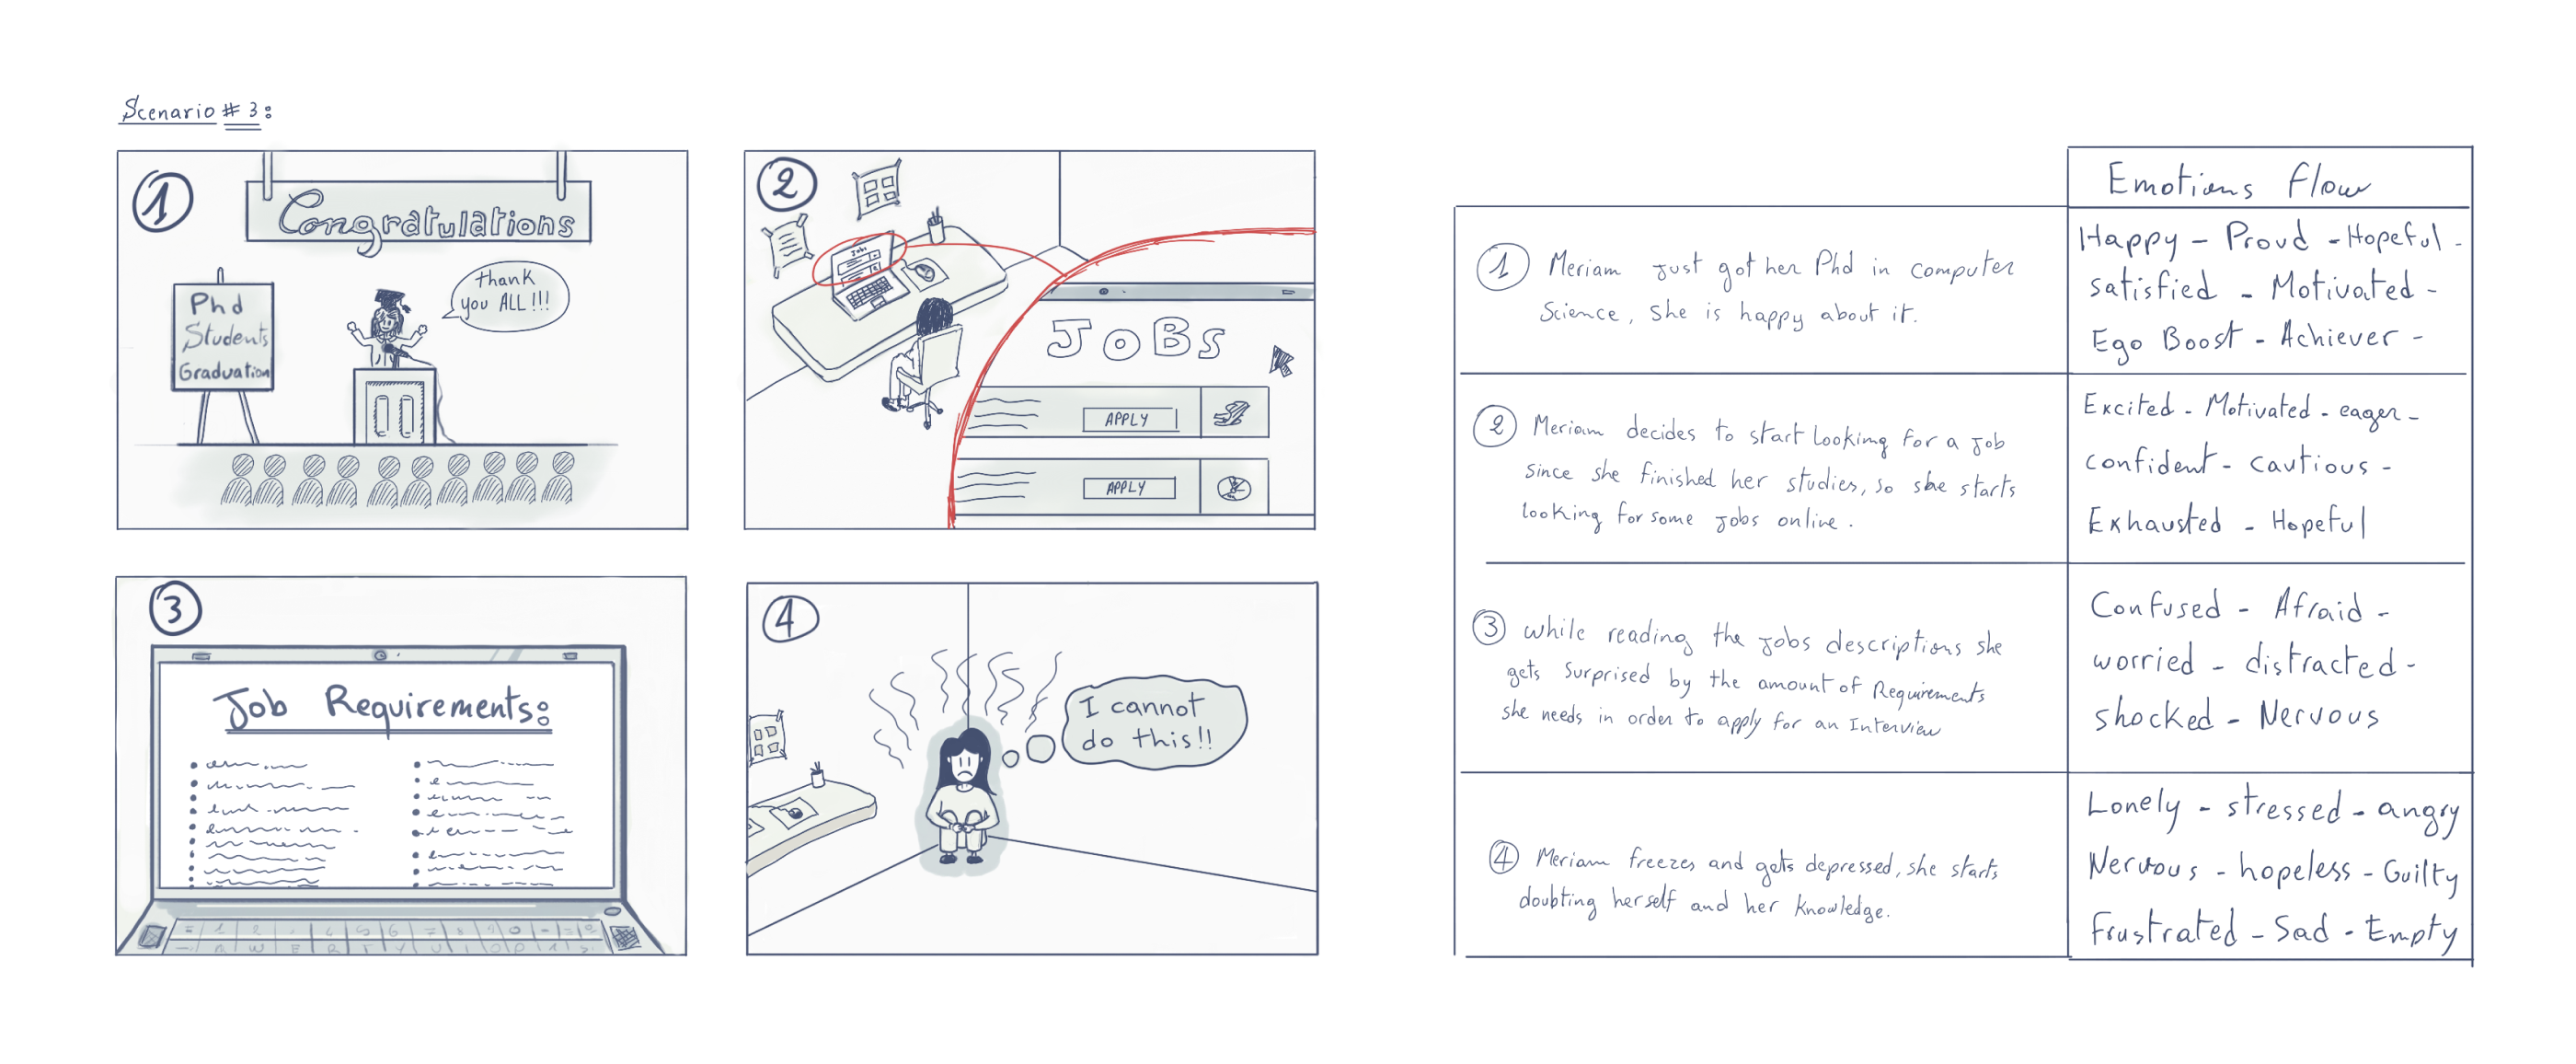 Scenario # 3:
1
Congratulations
Phd
Students
Graduation
thank
you ALL!!!
2
Jobs
JoBs
APPLY
APPLY
3
Job Requirements:
4
I cannot
do this!!
Emotions flow
1 Meriam just got her Phd in computer
Science, she is happy about it.
Happy - Proud - Hopeful -
satisfied - Motivated -
Ego Boost - Achiever -
2 Meriam decides to start looking for a job
since she finished her studies, so she starts
looking for some jobs online.
Excited - Motivated - eager -
confident - cautious -
Exhausted - Hopeful
3 while reading the jobs descriptions she
gets surprised by the amount of Requirements
she needs in order to apply for an Interview
Confused - Afraid -
worried - distracted -
shocked - Nervous
4 Meriam freezes and gets depressed, she starts
doubting herself and her knowledge.
Lonely - stressed - angry
Nervous - hopeless - Guilty
Frustrated - Sad - Empty